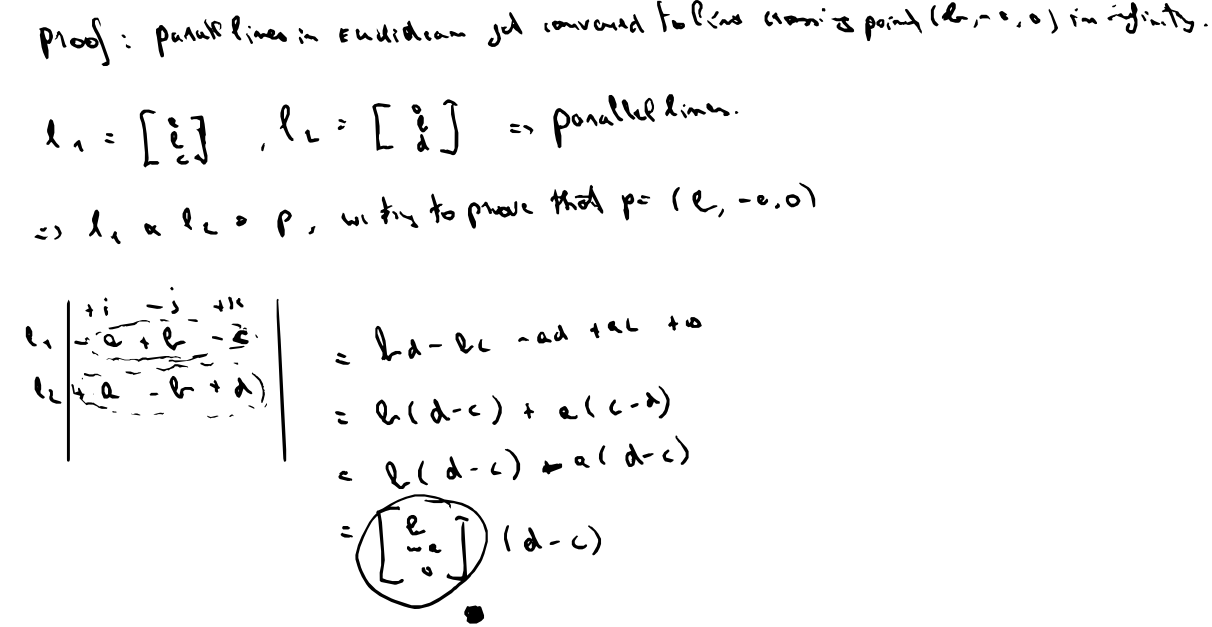 Proof : parallel lines in Euclidean get converted to lines crossing point (b, -a, 0) in infinity.
l₁ = [a b c] , l₂ = [a b d] => parallel lines.
=> l₁ x l₂ = p , we try to prove that p = (b, -a, 0)
+i -j +k
l₁ - a + b - c
l₂ + a - b + d
= bd - bc - ad + ac + 0
= b(d-c) + a(c-d)
= b(d-c) - a(d-c)
= [b -a 0] (d-c)